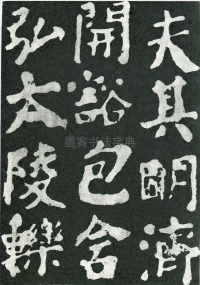 夫其明濟
開豁包含
弘大陵轢
墨客书法字典